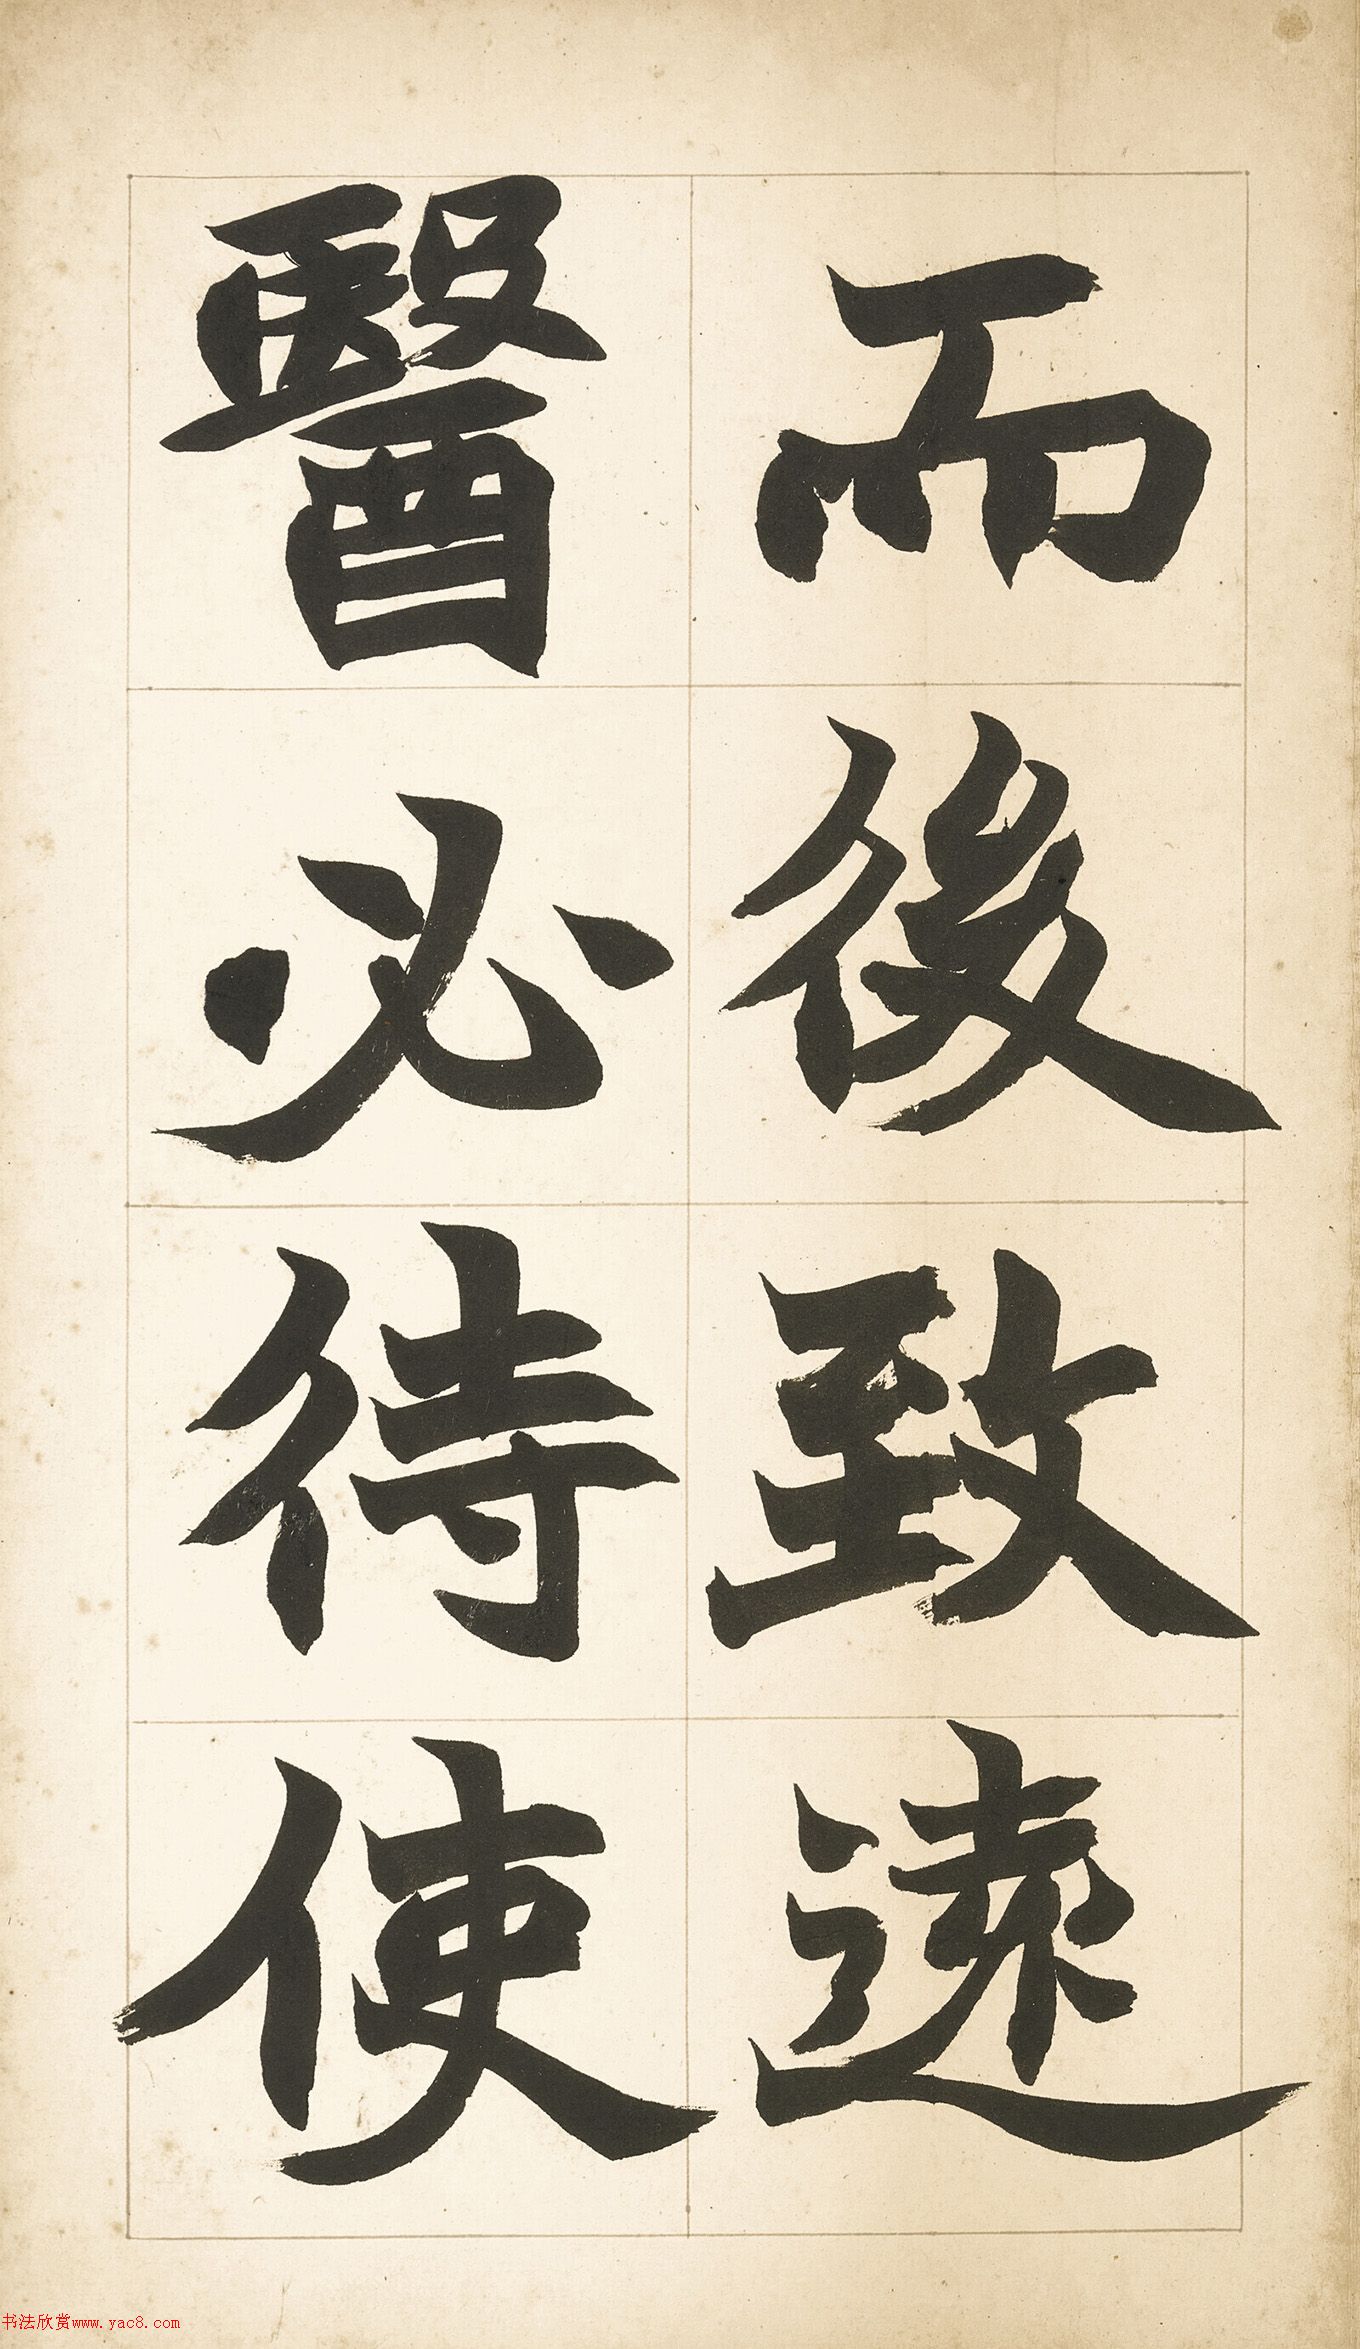 而後致遠
醫必待使
书法欣赏www.yac8.com